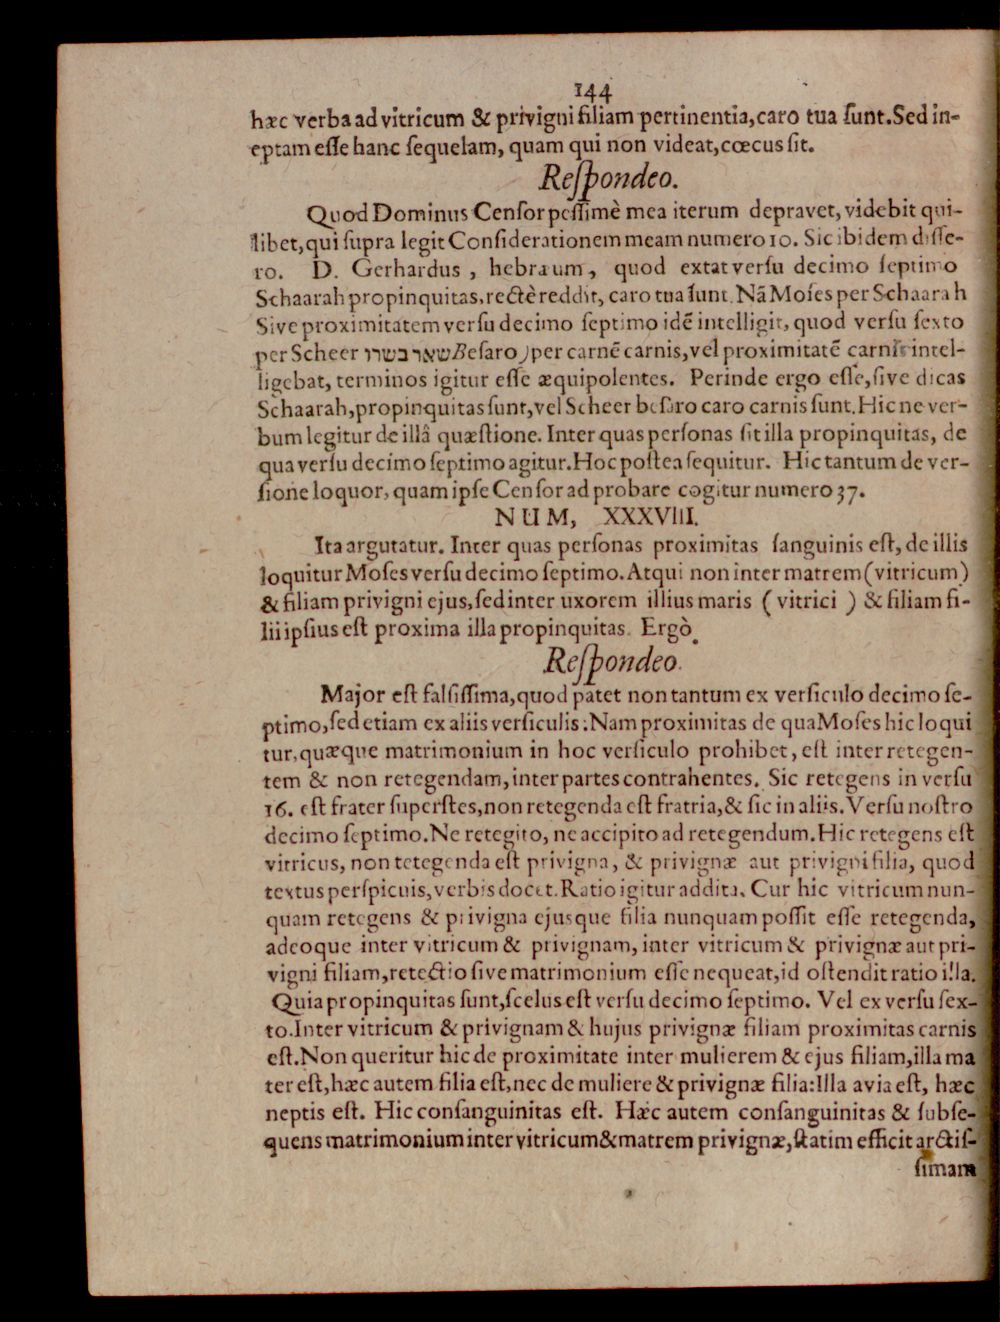 144
hæc verba ad vitricum & privigni filiam pertinentia, caro tua ſunt. Sed in-
eptam eſſe hanc ſequelam, quam qui non videat, cœcus ſit.
Reſpondeo.
Quod Dominus Cenſor peſſimè mea iterum depravet, videbit qui-
libet, qui ſupra legit Conſiderationem meam numero 10. Sic ibidem diſſe-
ro. D. Gerhardus, hebraum, quod extat verſu decimo ſeptimo
Schaarah propinquitas, rectè reddit, caro tua ſunt. Nã Moſes per Schaarah
Sive proximitatem verſu decimo ſeptimo idẽ intelligit, quod verſu ſexto
per Scheer שאר בשרו Beſaro) per carnẽ carnis, vel proximitatẽ carnis intel-
ligebat, terminos igitur eſſe æquipolentes. Perinde ergo eſſe, ſive dicas
Schaarah, propinquitas ſunt, vel Scheer beſaro caro carnis ſunt. Hic ne ver-
bum legitur de illâ quæſtione. Inter quas perſonas ſit illa propinquitas, de
qua verſu decimo ſeptimo agitur. Hoc poſtea ſequitur. Hic tantum de ver-
ſione loquor, quam ipſe Cenſor ad probare cogitur numero 37.
NUM, XXXVIII.
Ita argutatur. Inter quas perſonas proximitas ſanguinis eſt, de illis
loquitur Moſes verſu decimo ſeptimo. Atqui non inter matrem (vitricum)
& filiam privigni ejus, ſed inter uxorem illius maris (vitrici) & filiam fi-
lii ipſius eſt proxima illa propinquitas. Ergò.
Reſpondeo.
Major eſt falſiſſima, quod patet non tantum ex verſiculo decimo ſe-
ptimo, ſed etiam ex aliis verſiculis: Nam proximitas de qua Moſes hic loqui
tur, quæque matrimonium in hoc verſiculo prohibet, eſt inter retegen-
tem & non retegendam, inter partes contrahentes. Sic retegens in verſu
16. eſt frater ſuperſtes, non retegenda eſt fratria, & ſic in aliis. Verſu noſtro
decimo ſeptimo. Ne retegito, ne accipito ad retegendum. Hic retegens eſt
vitricus, non tetegenda eſt privigna, & privignæ aut privigni filia, quod
textus perſpicuis, verbis docet. Ratio igitur addita. Cur hic vitricum nun-
quam retegens & privigna ejusque filia nunquam poſſit eſſe retegenda,
adeoque inter vitricum & privignam, inter vitricum & privignæ aut pri-
vigni filiam, retectio ſive matrimonium eſſe nequeat, id oſtendit ratio illa.
Quia propinquitas ſunt, ſcelus eſt verſu decimo ſeptimo. Vel ex verſu ſex-
to. Inter vitricum & privignam & hujus privignæ filiam proximitas carnis
eſt. Non queritur hic de proximitate inter mulierem & ejus filiam, illa ma
ter eſt, hæc autem filia eſt, nec de muliere & privignæ filia: Illa avia eſt, hæc
neptis eſt. Hic conſanguinitas eſt. Hæc autem conſanguinitas & ſubſe-
quens matrimonium inter vitricum & matrem privignæ, ſtatim efficit arctiſ-
ſimam